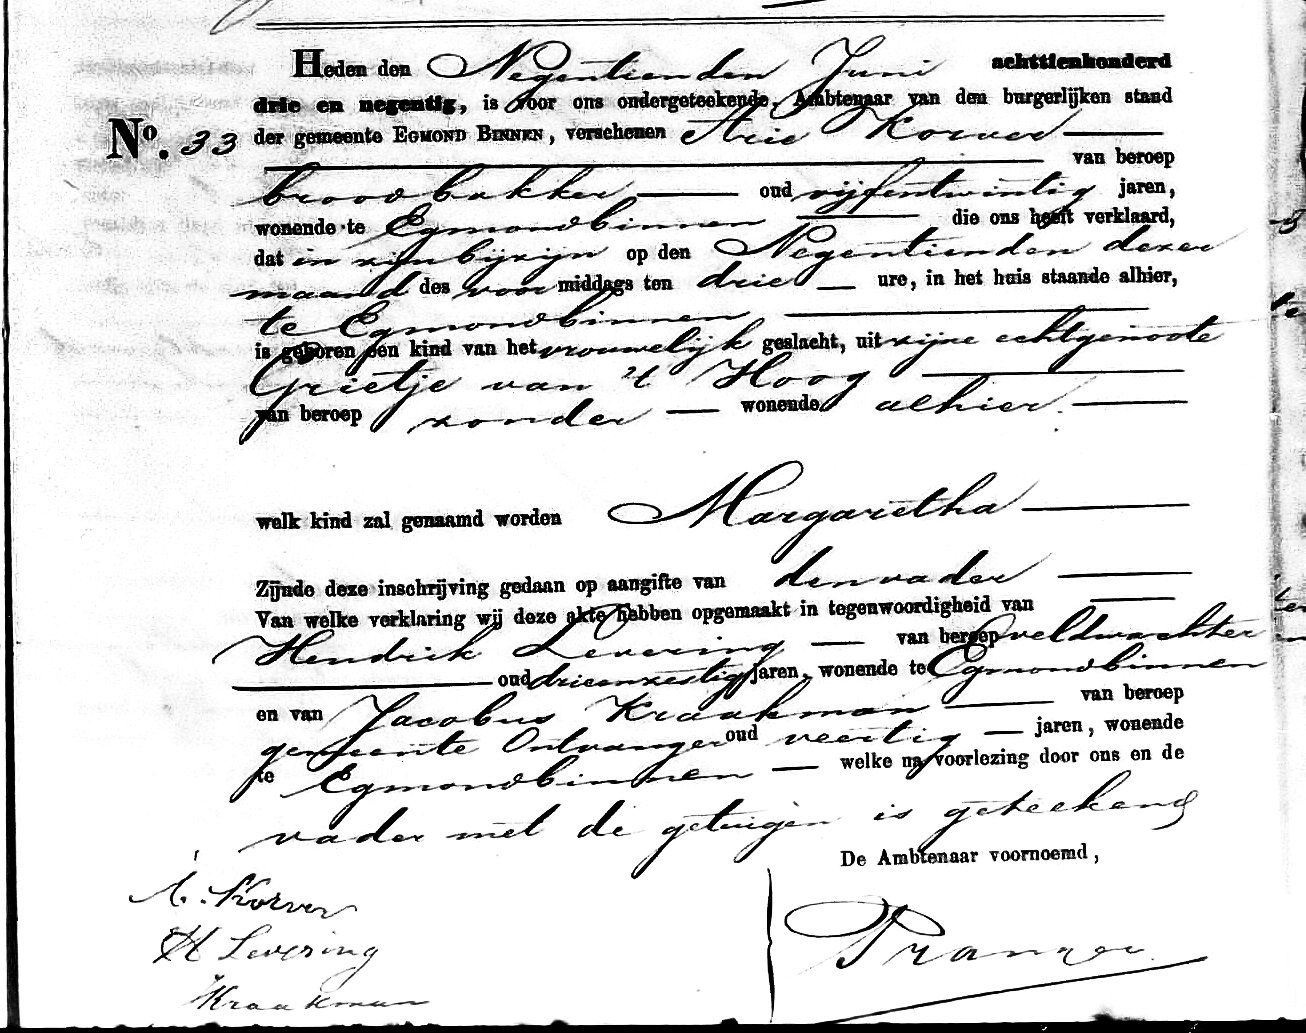 Heden den Negentienden Juni achttienhonderd
drie en negentig, is voor ons ondergeteekende, Ambtenaar van den burgerlijken stand
No. 33 der gemeente EGMOND BINNEN, verschenen Arie Korver
van beroep
broodbakker oud vijfentwintig jaren,
wonende te Egmondbinnen die ons heeft verklaard,
dat in zijn bijzijn op den Negentienden dezer
maand des voormiddags ten drie ure, in het huis staande alhier,
te Egmondbinnen
is geboren een kind van het vrouwelijk geslacht, uit zijne echtgenoote
Grietje van 't Hoog
van beroep zonder wonende alhier.
welk kind zal genaamd worden Margaretha
Zijnde deze inschrijving gedaan op aangifte van den vader
Van welke verklaring wij deze akte hebben opgemaakt in tegenwoordigheid van
Hendrik Levering van beroep veldwachter
oud drieenzestig jaren, wonende te Egmondbinnen
en van Jacobus Kraakman van beroep
gemeente Ontvanger oud veertig jaren, wonende
te Egmondbinnen welke na voorlezing door ons en de
vader met de getuigen is geteekend
De Ambtenaar voornoemd,
A. Korver
H Levering
Kraakman
Pranger